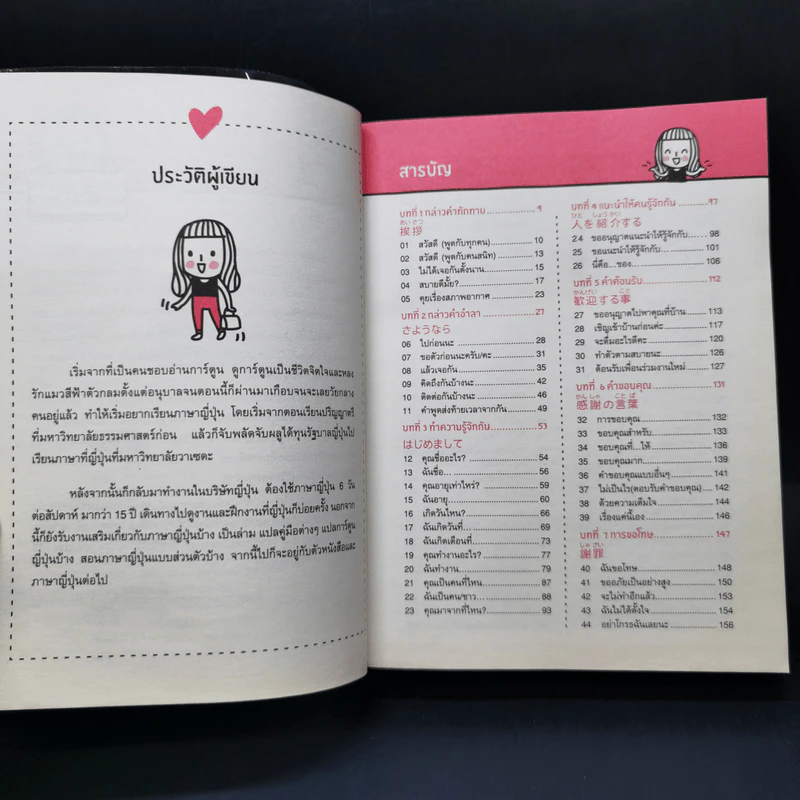 ประวัติผู้เขียน
เริ่มจากที่เป็นคนชอบอ่านการ์ตูน ดูการ์ตูนเป็นชีวิตจิตใจและหลง
รักแมวสีฟ้าตัวกลมตั้งแต่อนุบาลจนตอนนี้ก็ผ่านมาเกือบจนจะเลยวัยกลาง
คนอยู่แล้ว ทำให้เริ่มอยากเรียนภาษาญี่ปุ่น โดยเริ่มจากตอนเรียนปริญญาตรี
ที่มหาวิทยาลัยธรรมศาสตร์ก่อน แล้วก็จับพลัดจับผลูได้ทุนรัฐบาลญี่ปุ่นไป
เรียนภาษาที่ญี่ปุ่นที่มหาวิทยาลัยวาเซดะ
หลังจากนั้นก็กลับมาทำงานในบริษัทญี่ปุ่น ต้องใช้ภาษาญี่ปุ่น 6 วัน
ต่อสัปดาห์ มากว่า 15 ปี เดินทางไปดูงานและฝึกงานที่ญี่ปุ่นก็บ่อยครั้ง นอกจาก
นี้ก็ยังรับงานเสริมเกี่ยวกับภาษาญี่ปุ่นบ้าง เป็นล่าม แปลคู่มือต่างๆ แปลการ์ตูน
ญี่ปุ่นบ้าง สอนภาษาญี่ปุ่นแบบส่วนตัวบ้าง จากนี้ไปก็จะอยู่กับตัวหนังสือและ
ภาษาญี่ปุ่นต่อไป
สารบัญ
บทที่ 1 กล่าวคำทักทาย 9
あいさつ
挨拶
01 สวัสดี (พูดกับทุกคน) 10
02 สวัสดี (พูดกับคนสนิท) 13
03 ไม่ได้เจอกันตั้งนาน 15
04 สบายดีมั้ย? 17
05 คุยเรื่องสภาพอากาศ 23
บทที่ 2 กล่าวคำอำลา 27
さようなら
06 ไปก่อนนะ 28
07 ขอตัวก่อนนะครับ/คะ 31
08 แล้วเจอกัน 35
09 คิดถึงกันบ้างนะ 38
10 ติดต่อกันบ้างนะ 41
11 คำพูดส่งท้ายเวลาจากกัน 49
บทที่ 3 ทำความรู้จักกัน 53
はじめまして
12 คุณชื่ออะไร? 54
13 ฉันชื่อ... 56
14 คุณอายุเท่าไหร่? 59
15 ฉันอายุ 60
16 เกิดวันไหน? 66
17 ฉันเกิดวันที่ 69
18 ฉันเกิดเดือนที่ 73
19 คุณทำงานอะไร? 77
20 ฉันทำงาน 79
21 คุณเป็นคนที่ไหน 87
22 ฉันเป็นคน/ชาว 88
23 คุณมาจากที่ไหน? 93
บทที่ 4 แนะนำให้คนรู้จักกัน 97
ひと しょうかい
人を紹介する
24 ขออนุญาตแนะนำให้รู้จักกับ 98
25 ขอแนะนำให้รู้จักกับ 101
26 นี่คือ...ของ 106
บทที่ 5 คำต้อนรับ 112
かんげい こと
歓迎する事
27 ขออนุญาตไปหาคุณที่บ้าน 113
28 เชิญเข้าบ้านก่อนค่ะ 117
29 จะดื่มอะไรดีคะ 120
30 ทำตัวตามสบายนะ 127
31 ต้อนรับเพื่อนร่วมงานใหม่ 130
บทที่ 6 คำขอบคุณ 131
かんしゃ ことば
感謝の言葉
32 การขอบคุณ 132
33 ขอบคุณสำหรับ 133
34 ขอบคุณที่...ให้ 136
35 ขอบคุณมาก 138
36 คำขอบคุณแบบอื่นๆ 141
37 ไม่เป็นไร(ตอบรับคำขอบคุณ) 142
38 ด้วยความเต็มใจ 144
39 เรื่องแค่นี้เอง 146
บทที่ 7 การขอโทษ 147
しゃざい
謝罪
40 ฉันขอโทษ 148
41 ขออภัยเป็นอย่างสูง 150
42 จะไม่ทำอีกแล้ว 153
43 ฉันไม่ได้ตั้งใจ 154
44 อย่าโกรธฉันเลยนะ 156